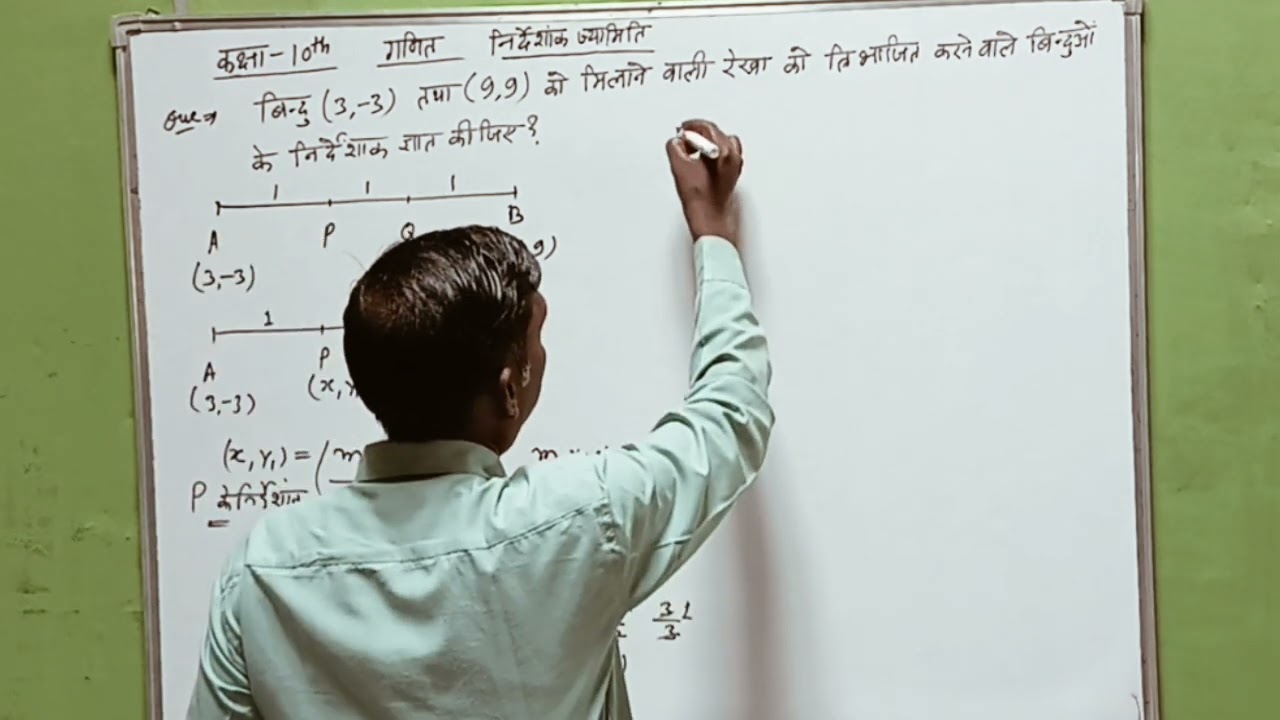 कक्षा-10th गणित निर्देशांक ज्यामिति
Que⇒ बिन्दु (3,-3) तथा (9,9) को मिलाने वाली रेखा को त्रिभाजित करने वाले बिन्दुओं
के निर्देशांक ज्ञात कीजिए?
1 1 1
A P Q B
(3,-3) 9)
1
A P
(3,-3) (x,
(x, y₁) = (m
P के निर्देशांक
3/3 1